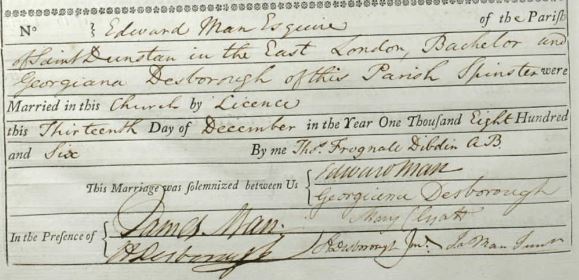 No } Edward Man Esquire of the Parish
of Saint Dunstan in the East London, Bachelor and
Georgiana Desborough of this Parish Spinster were
Married in this Church by Licence
this Thirteenth Day of December in the Year One Thousand Eight Hundred
and Six By me Thos. Frognall Dibdin A B
This Marriage was solemnized between Us { Edward Man
Georgiana Desborough
In the Presence of { James Man. Mary
H Desborough Desborough Junr. Ja Man Junr